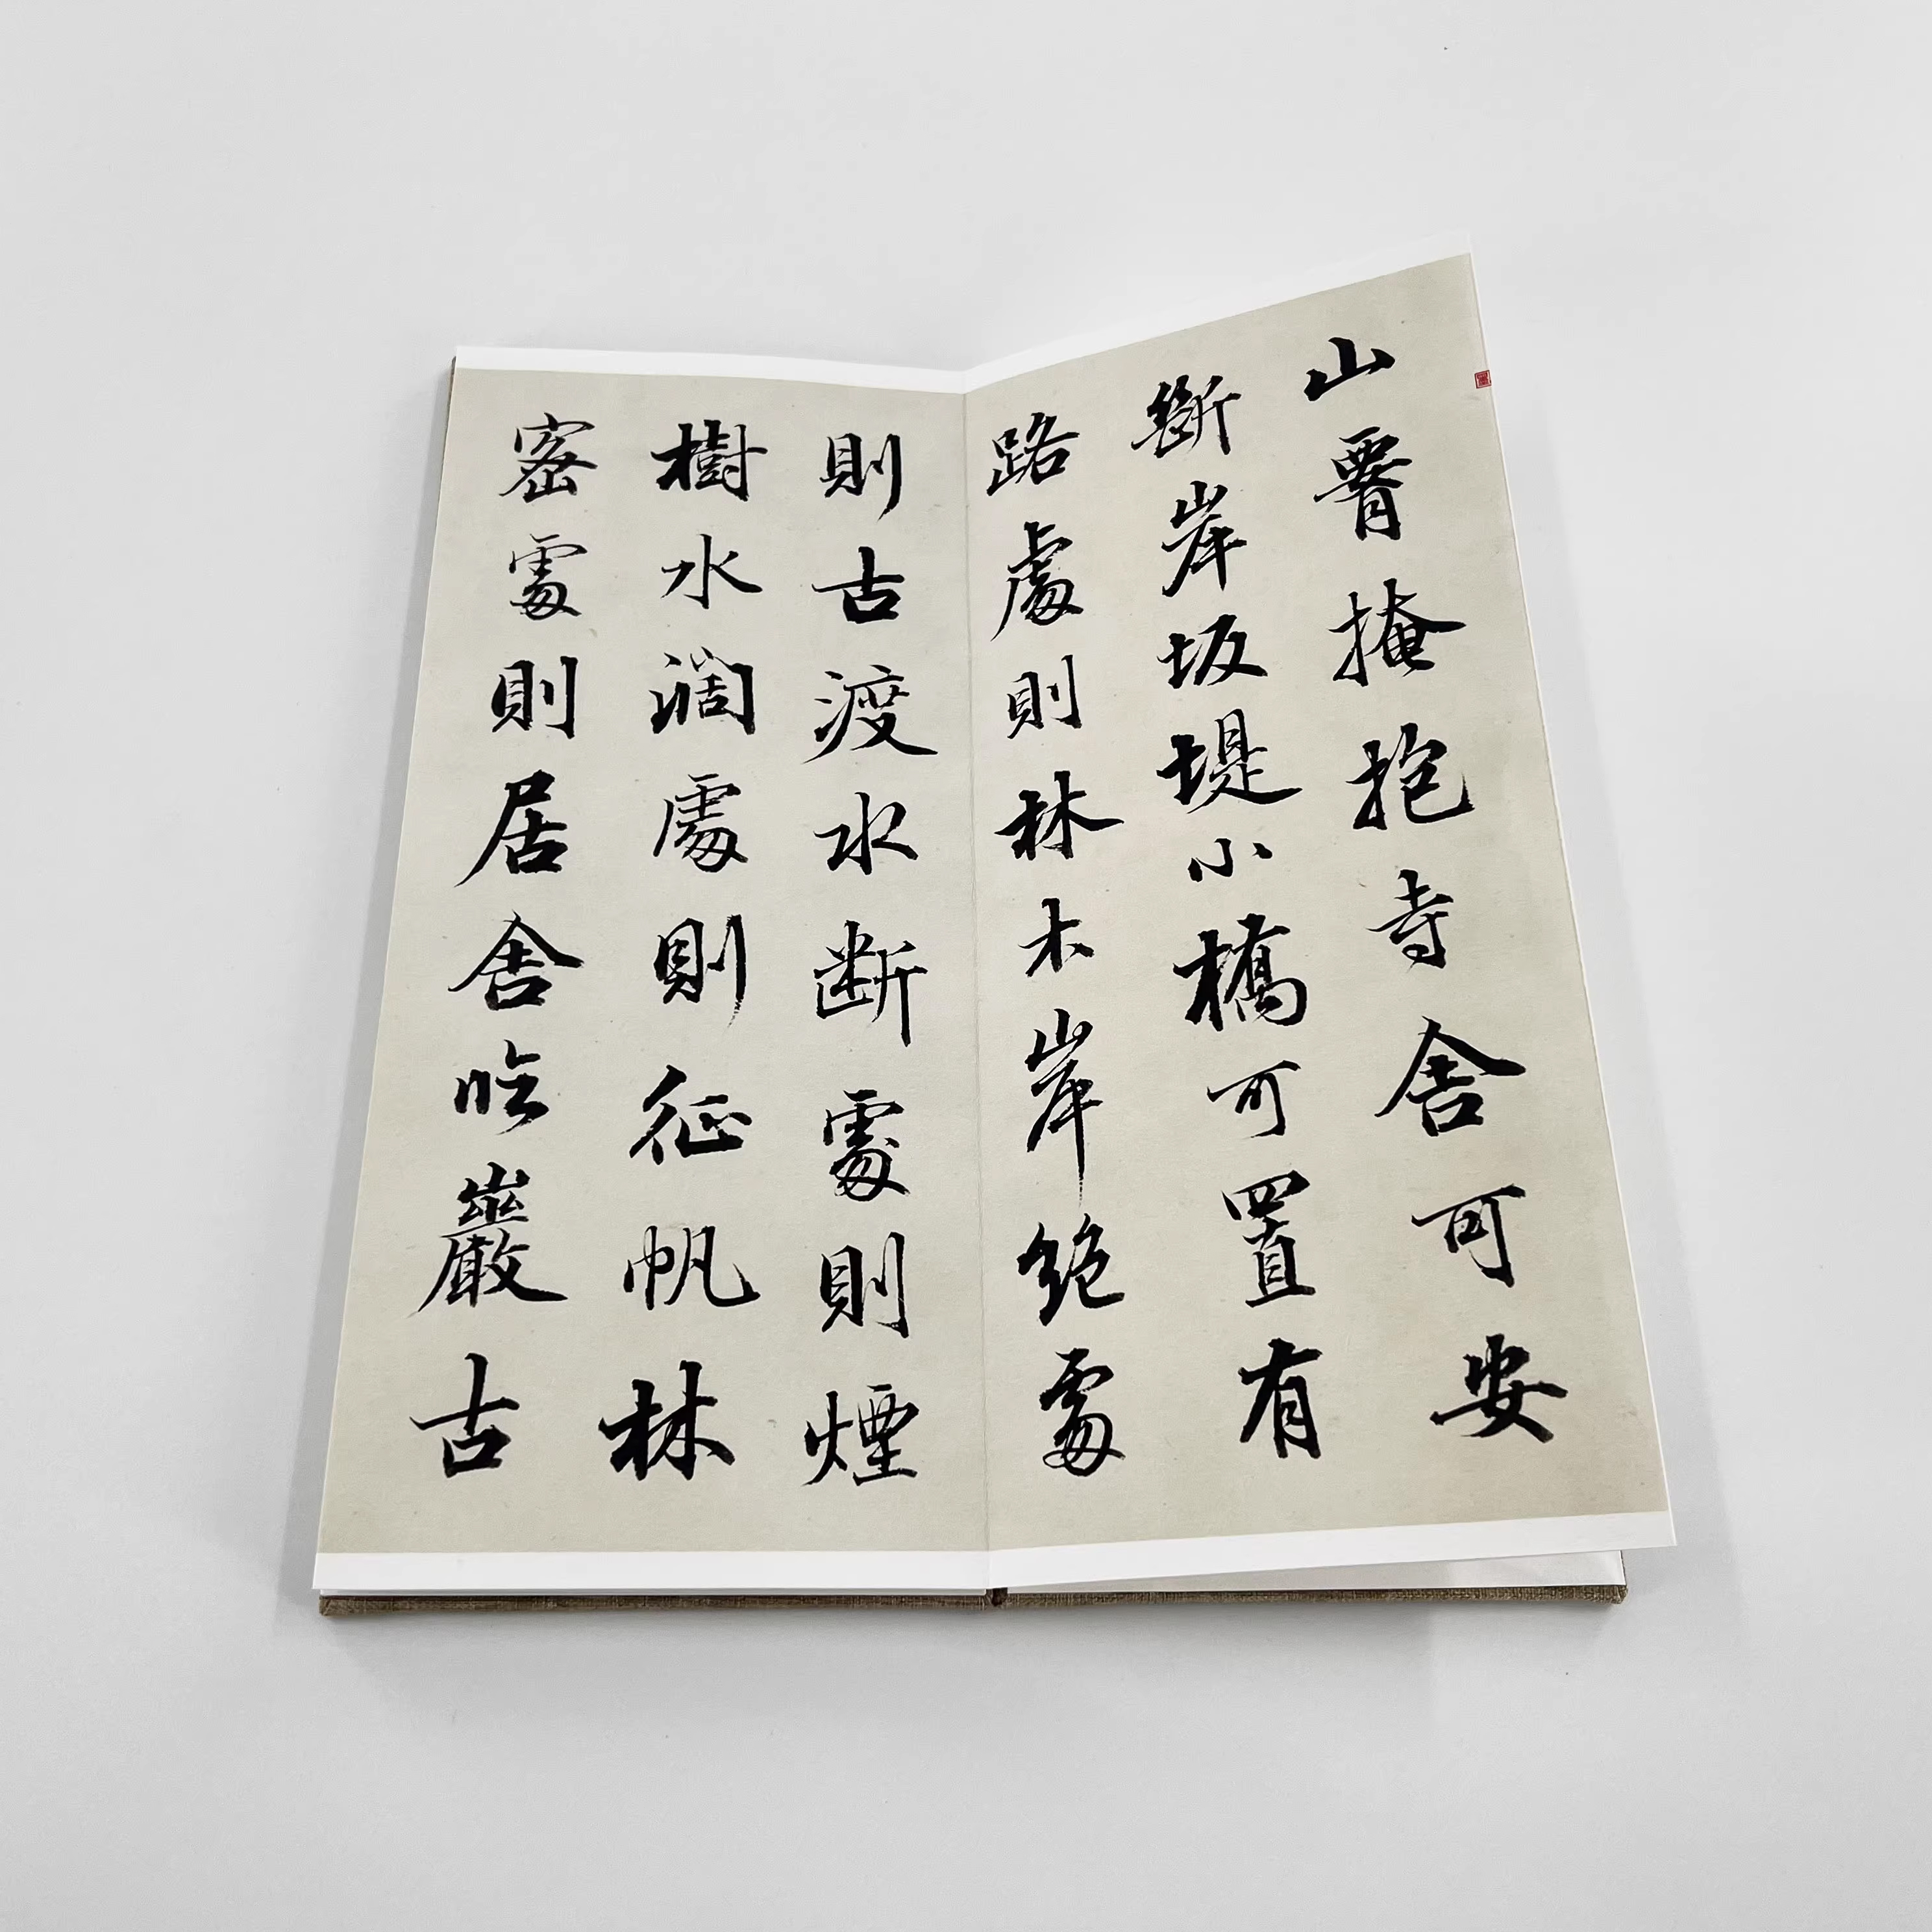 山腰掩抱寺舍可安
斷岸坂堤小橋可置有
路處則林木岸絕處
則古渡水断處則煙
樹水濶處則征帆林
密處則居舍臨巖古